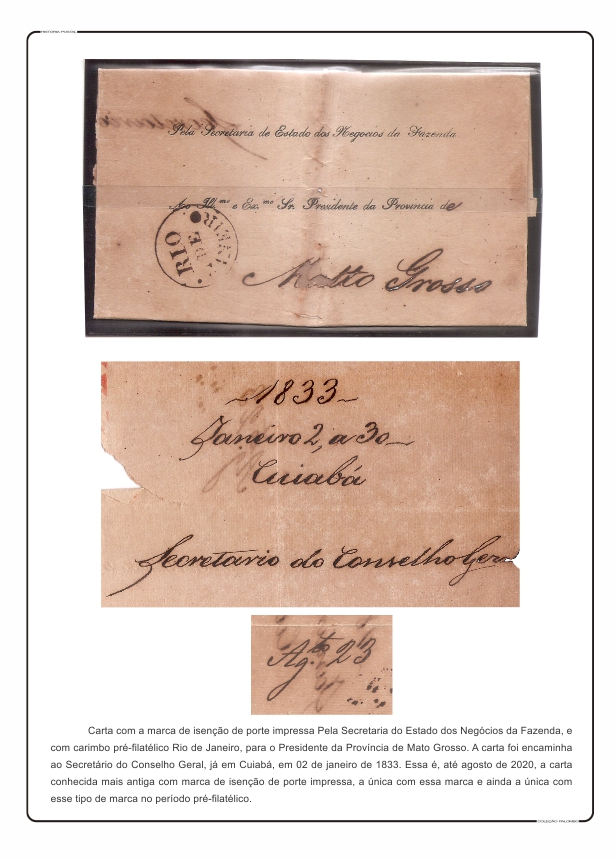 HISTÓRIA POSTAL
Pela Secretaria de Estado dos Negocios da Fazenda
Ao Ill.mo e Ex.mo Sr. Presidente da Provincia de
RIO DE JANEIRO
Matto Grosso
1833
Janeiro 2, a 30
Cuiabá
Secretario do Conselho Geral
Ag.to 23
Carta com a marca de isenção de porte impressa Pela Secretaria do Estado dos Negócios da Fazenda, e
com carimbo pré-filatélico Rio de Janeiro, para o Presidente da Província de Mato Grosso. A carta foi encaminha
ao Secretário do Conselho Geral, já em Cuiabá, em 02 de janeiro de 1833. Essa é, até agosto de 2020, a carta
conhecida mais antiga com marca de isenção de porte impressa, a única com essa marca e ainda a única com
esse tipo de marca no período pré-filatélico.
COLEÇÃO PALOMBO